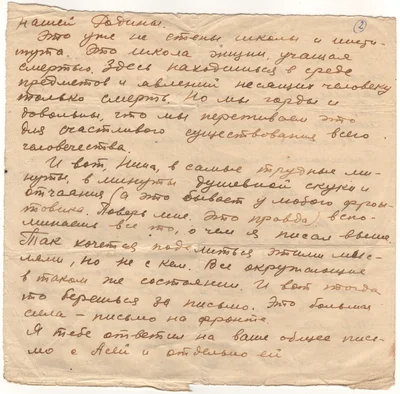 нашей Родины. 2
Это уже не стены школы и инсти-
тута. Это школа жизни, учащая
смертью. Здесь находишься в среде
предметов и явлений несящих человеку
только смерть. Но мы горды и
довольны, что мы переживаем это
для счастливого существования всего
человечества.
И вот, Нина, в самые трудные ми-
нуты, в минуты душевной скуки и
отчаяния (а это бывает у любого фрон-
товика. Поверь мне. Это правда) вспо-
минаешь все то, о чем я писал выше.
Так хочется поделиться этими мыс-
лями, но не с кем. Все окружающие
в таком же состоянии. И вот тогда
то берешься за письмо. Это большая
сила - письмо на фронте.
Я тебе ответил на ваше общее пись-
мо с Асей и отдельно ей